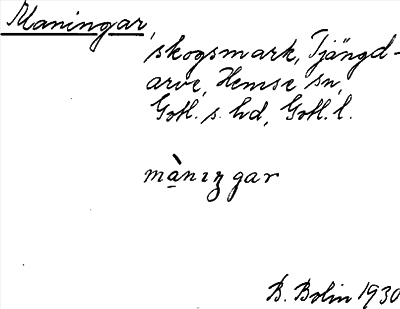 Maningar,
skogsmark, Tjängd-
arve, Hemse sn,
Gotl. s. hd, Gotl. l.
mạ̀nıꞑgar
B. Bolin 1930